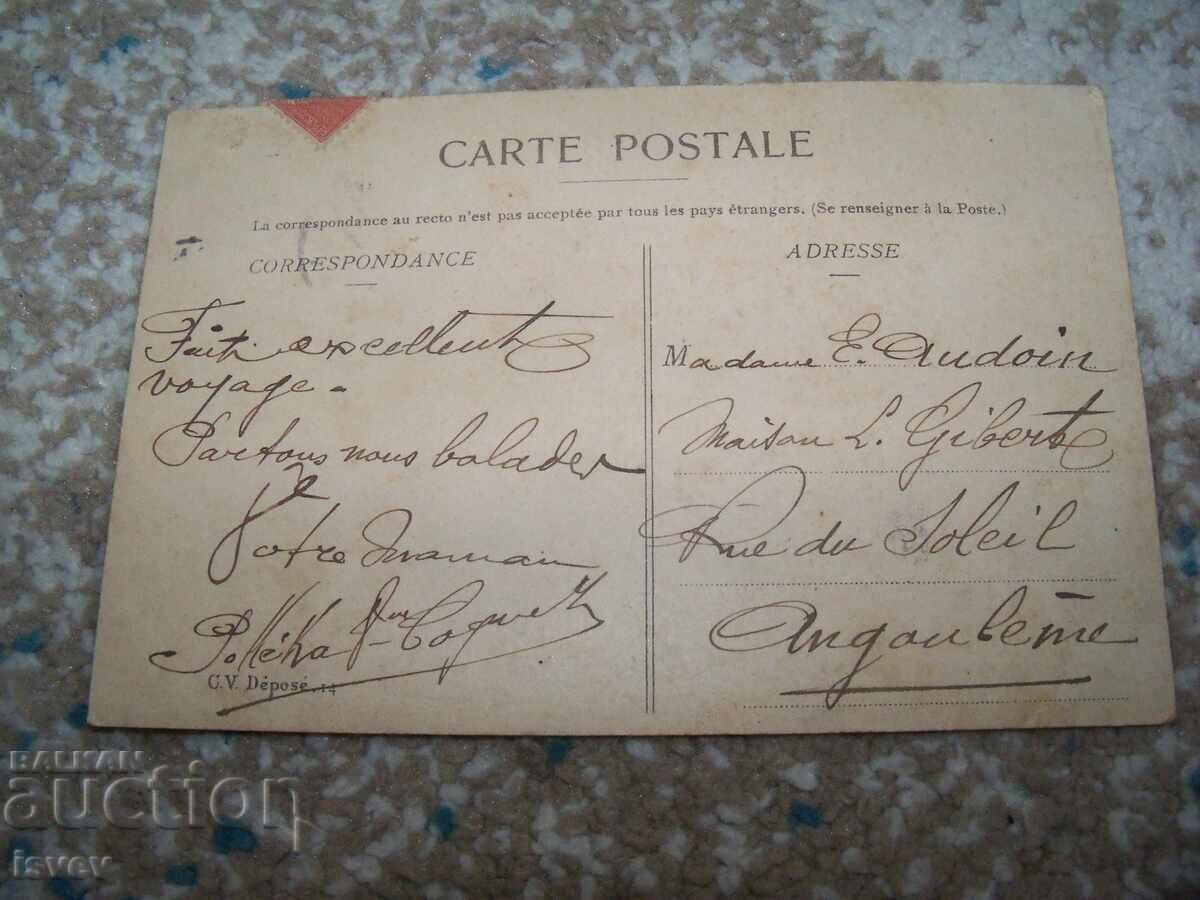 CARTE POSTALE
La correspondance au recto n'est pas acceptée par tous les pays étrangers. (Se renseigner à la Poste.)
CORRESPONDANCE
Fait excellent
voyage.
Partons nous balader
Votre maman
Coquet
C.V. Déposé. 14
ADRESSE
Madame E. Audoin
Maison L. Gibert
Rue du Soleil
Angoulême
BALKAN
auction
isvev